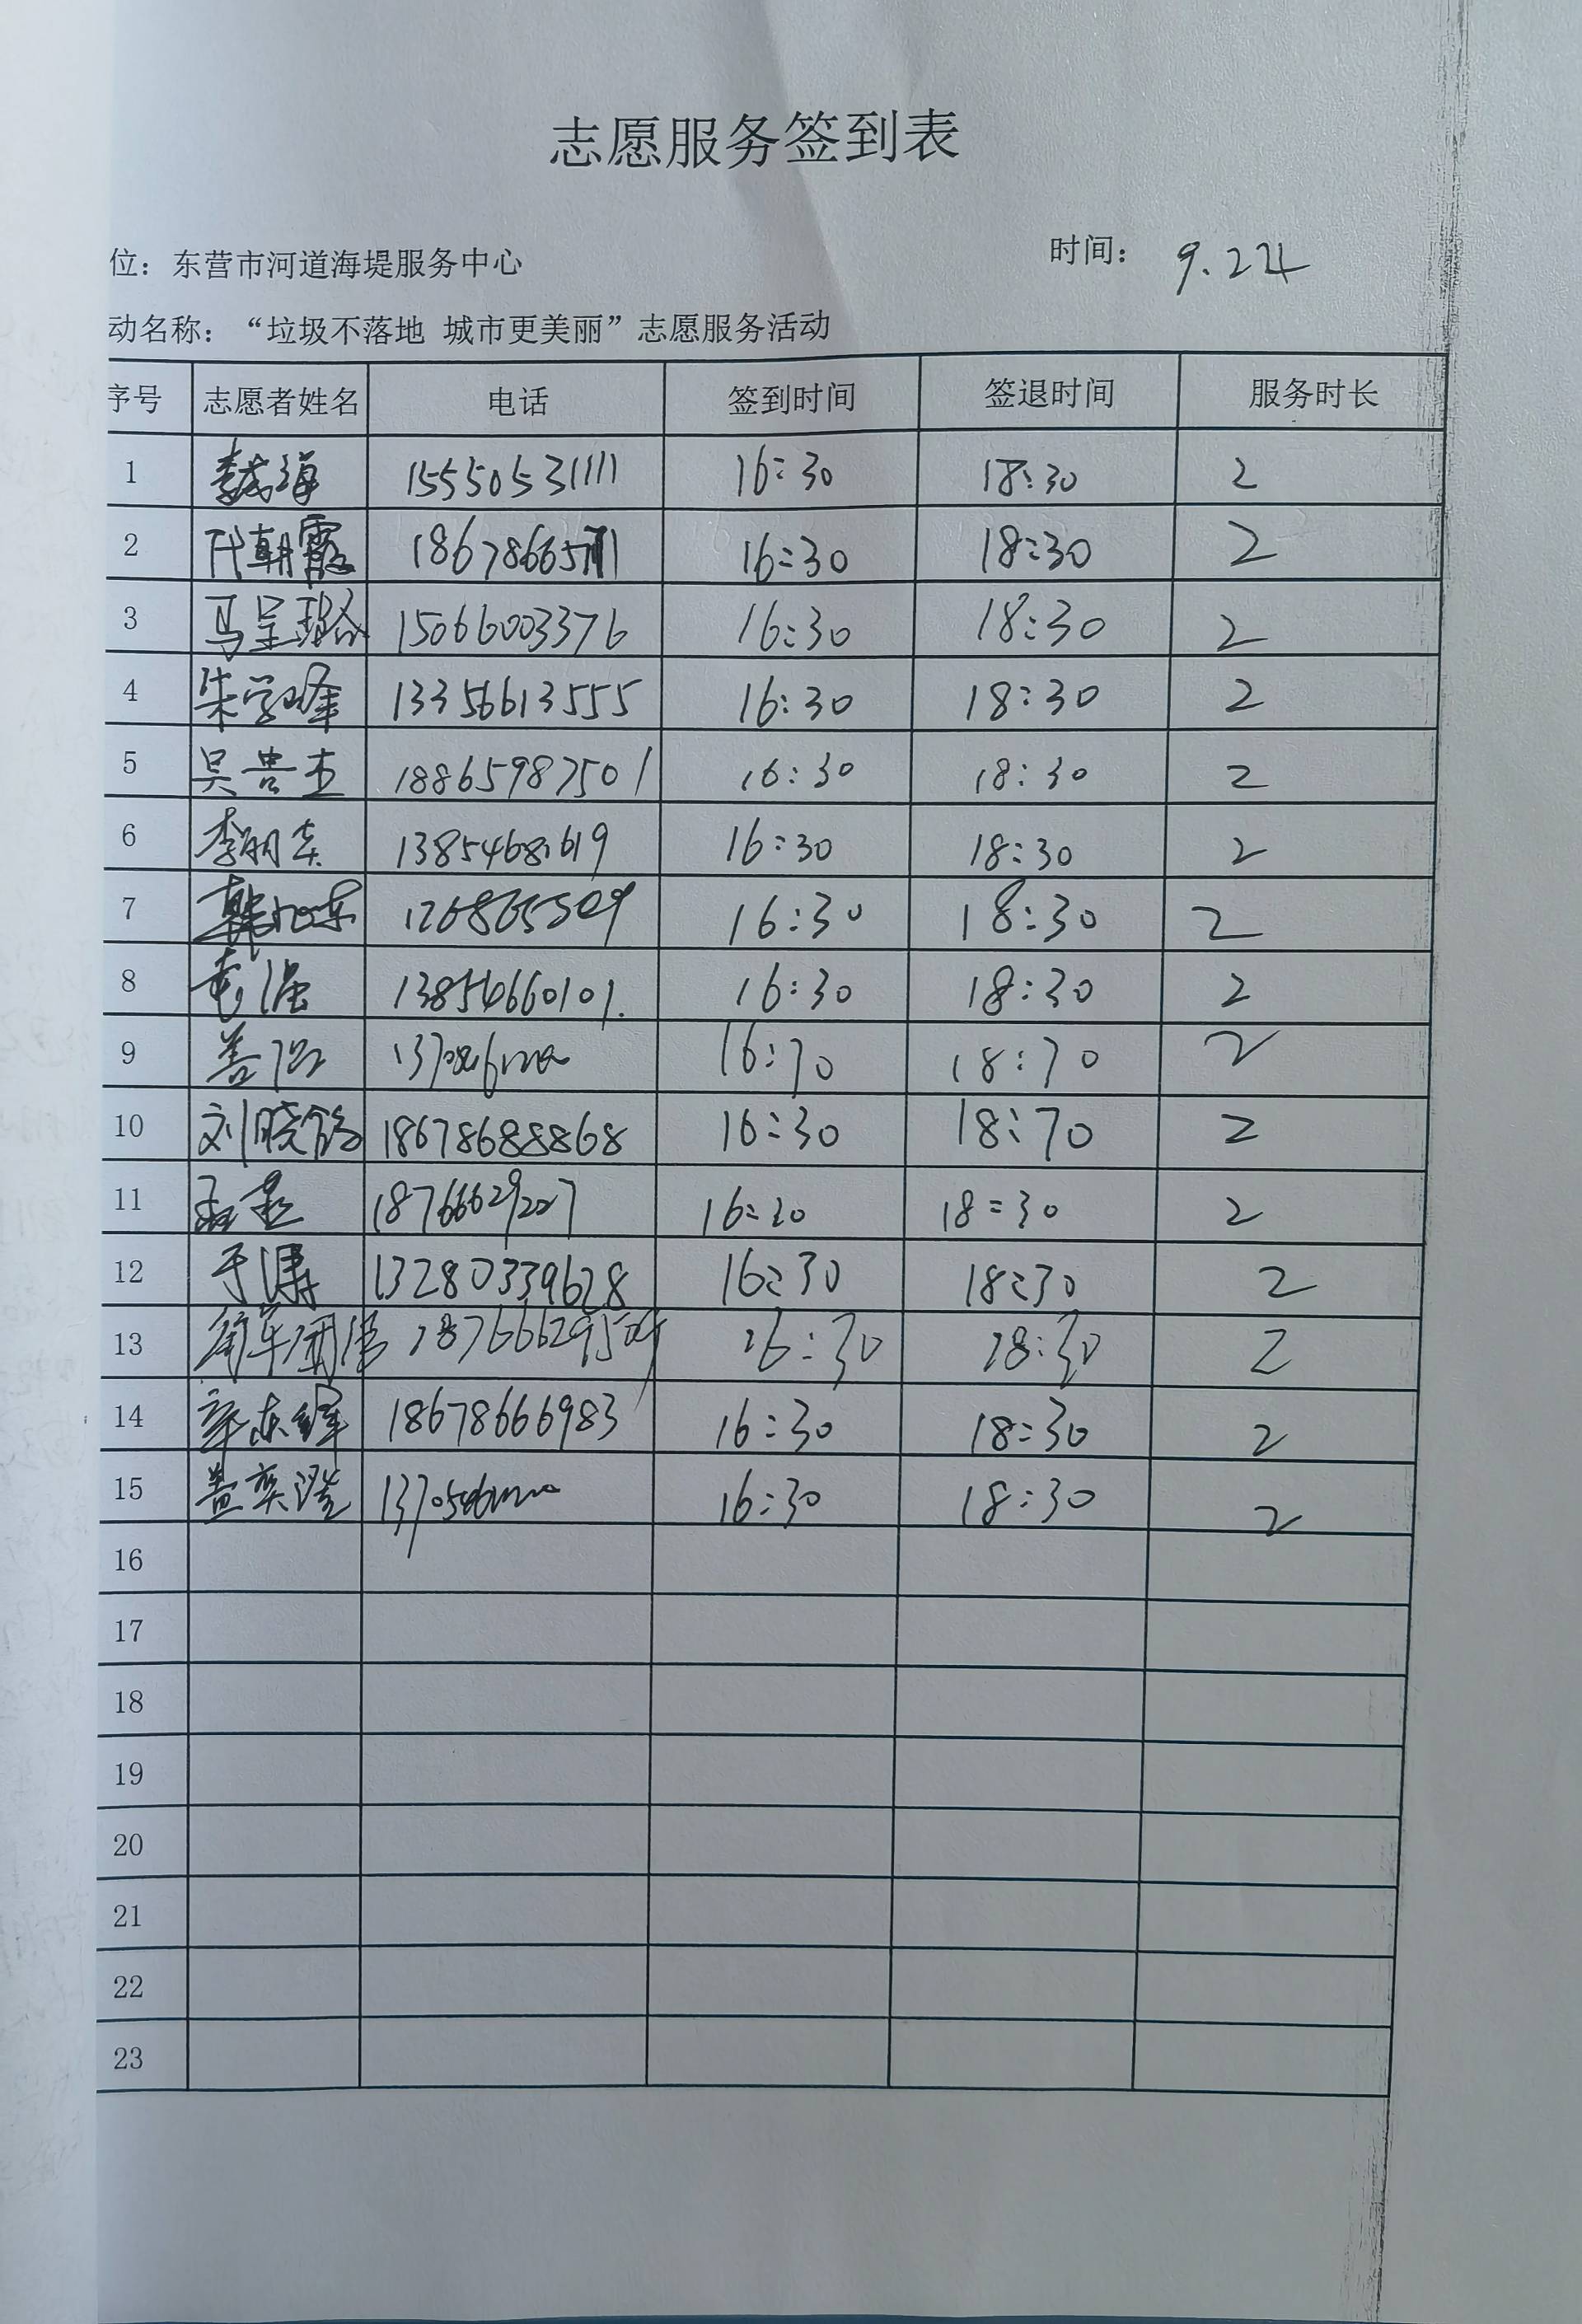 志愿服务签到表
位：东营市河道海堤服务中心 时间： 9.24
动名称：“垃圾不落地 城市更美丽”志愿服务活动
序号 志愿者姓名 电话 签到时间 签退时间 服务时长
1 海 15550531111 16:30 18:30 2
2 代朝霞 16:30 18:30 2
3 马呈璐 15066003376 16:30 18:30 2
4 朱学峰 13356613555 16:30 18:30 2
5 吴贵 18865987501 16:30 18:30 2
6 李明 16:30 18:30 2
7 韩 东 16:30 18:30 2
8 强 13854660101 16:30 18:30 2
9 16:30 18:30 2
10 刘晓 18678688868 16:30 18:30 2
11 孟 18766629227 16:30 18:30 2
12 于涛 13280339628 16:30 18:30 2
13 16:30 18:30 2
14 18678666983 16:30 18:30 2
15 盖奕澄 16:30 18:30 2
16
17
18
19
20
21
22
23